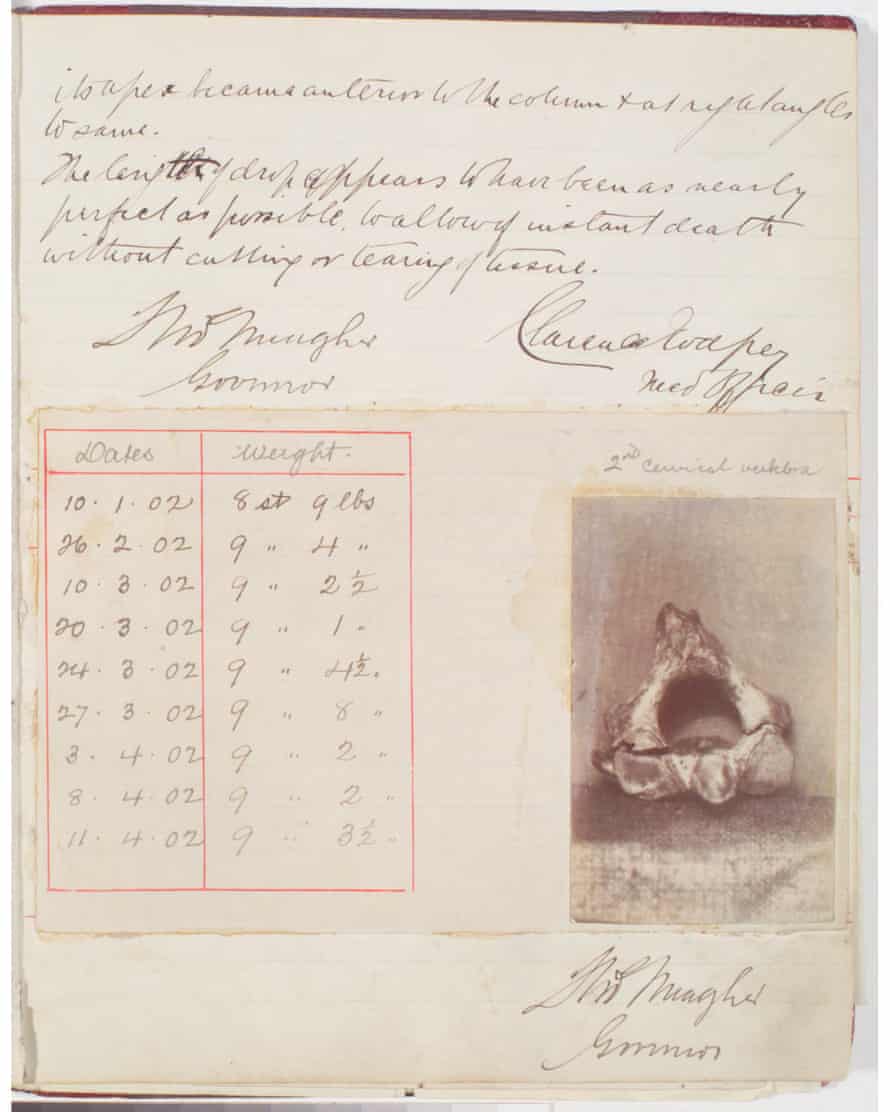 its apex became anterior to the column & at right angles
to same.
The length of drop appears to have been as nearly
perfect as possible, to allow of instant death
without cutting or tearing of tissue.
Thos Meagher
Clarence
Governor
Med Officer
Dates Weight.
2nd cervical vertebra
10 . 1 . 02 8 st 9 lbs
26 . 2 . 02 9 " 4 "
10 . 3 . 02 9 " 2½
20 . 3 . 02 9 " 1 "
24 . 3 . 02 9 " 4½ "
27 . 3 . 02 9 " 8 "
3 . 4 . 02 9 " 2 "
8 . 4 . 02 9 " 2 "
11 . 4 . 02 9 " 3½ "
Thos Meagher
Governor